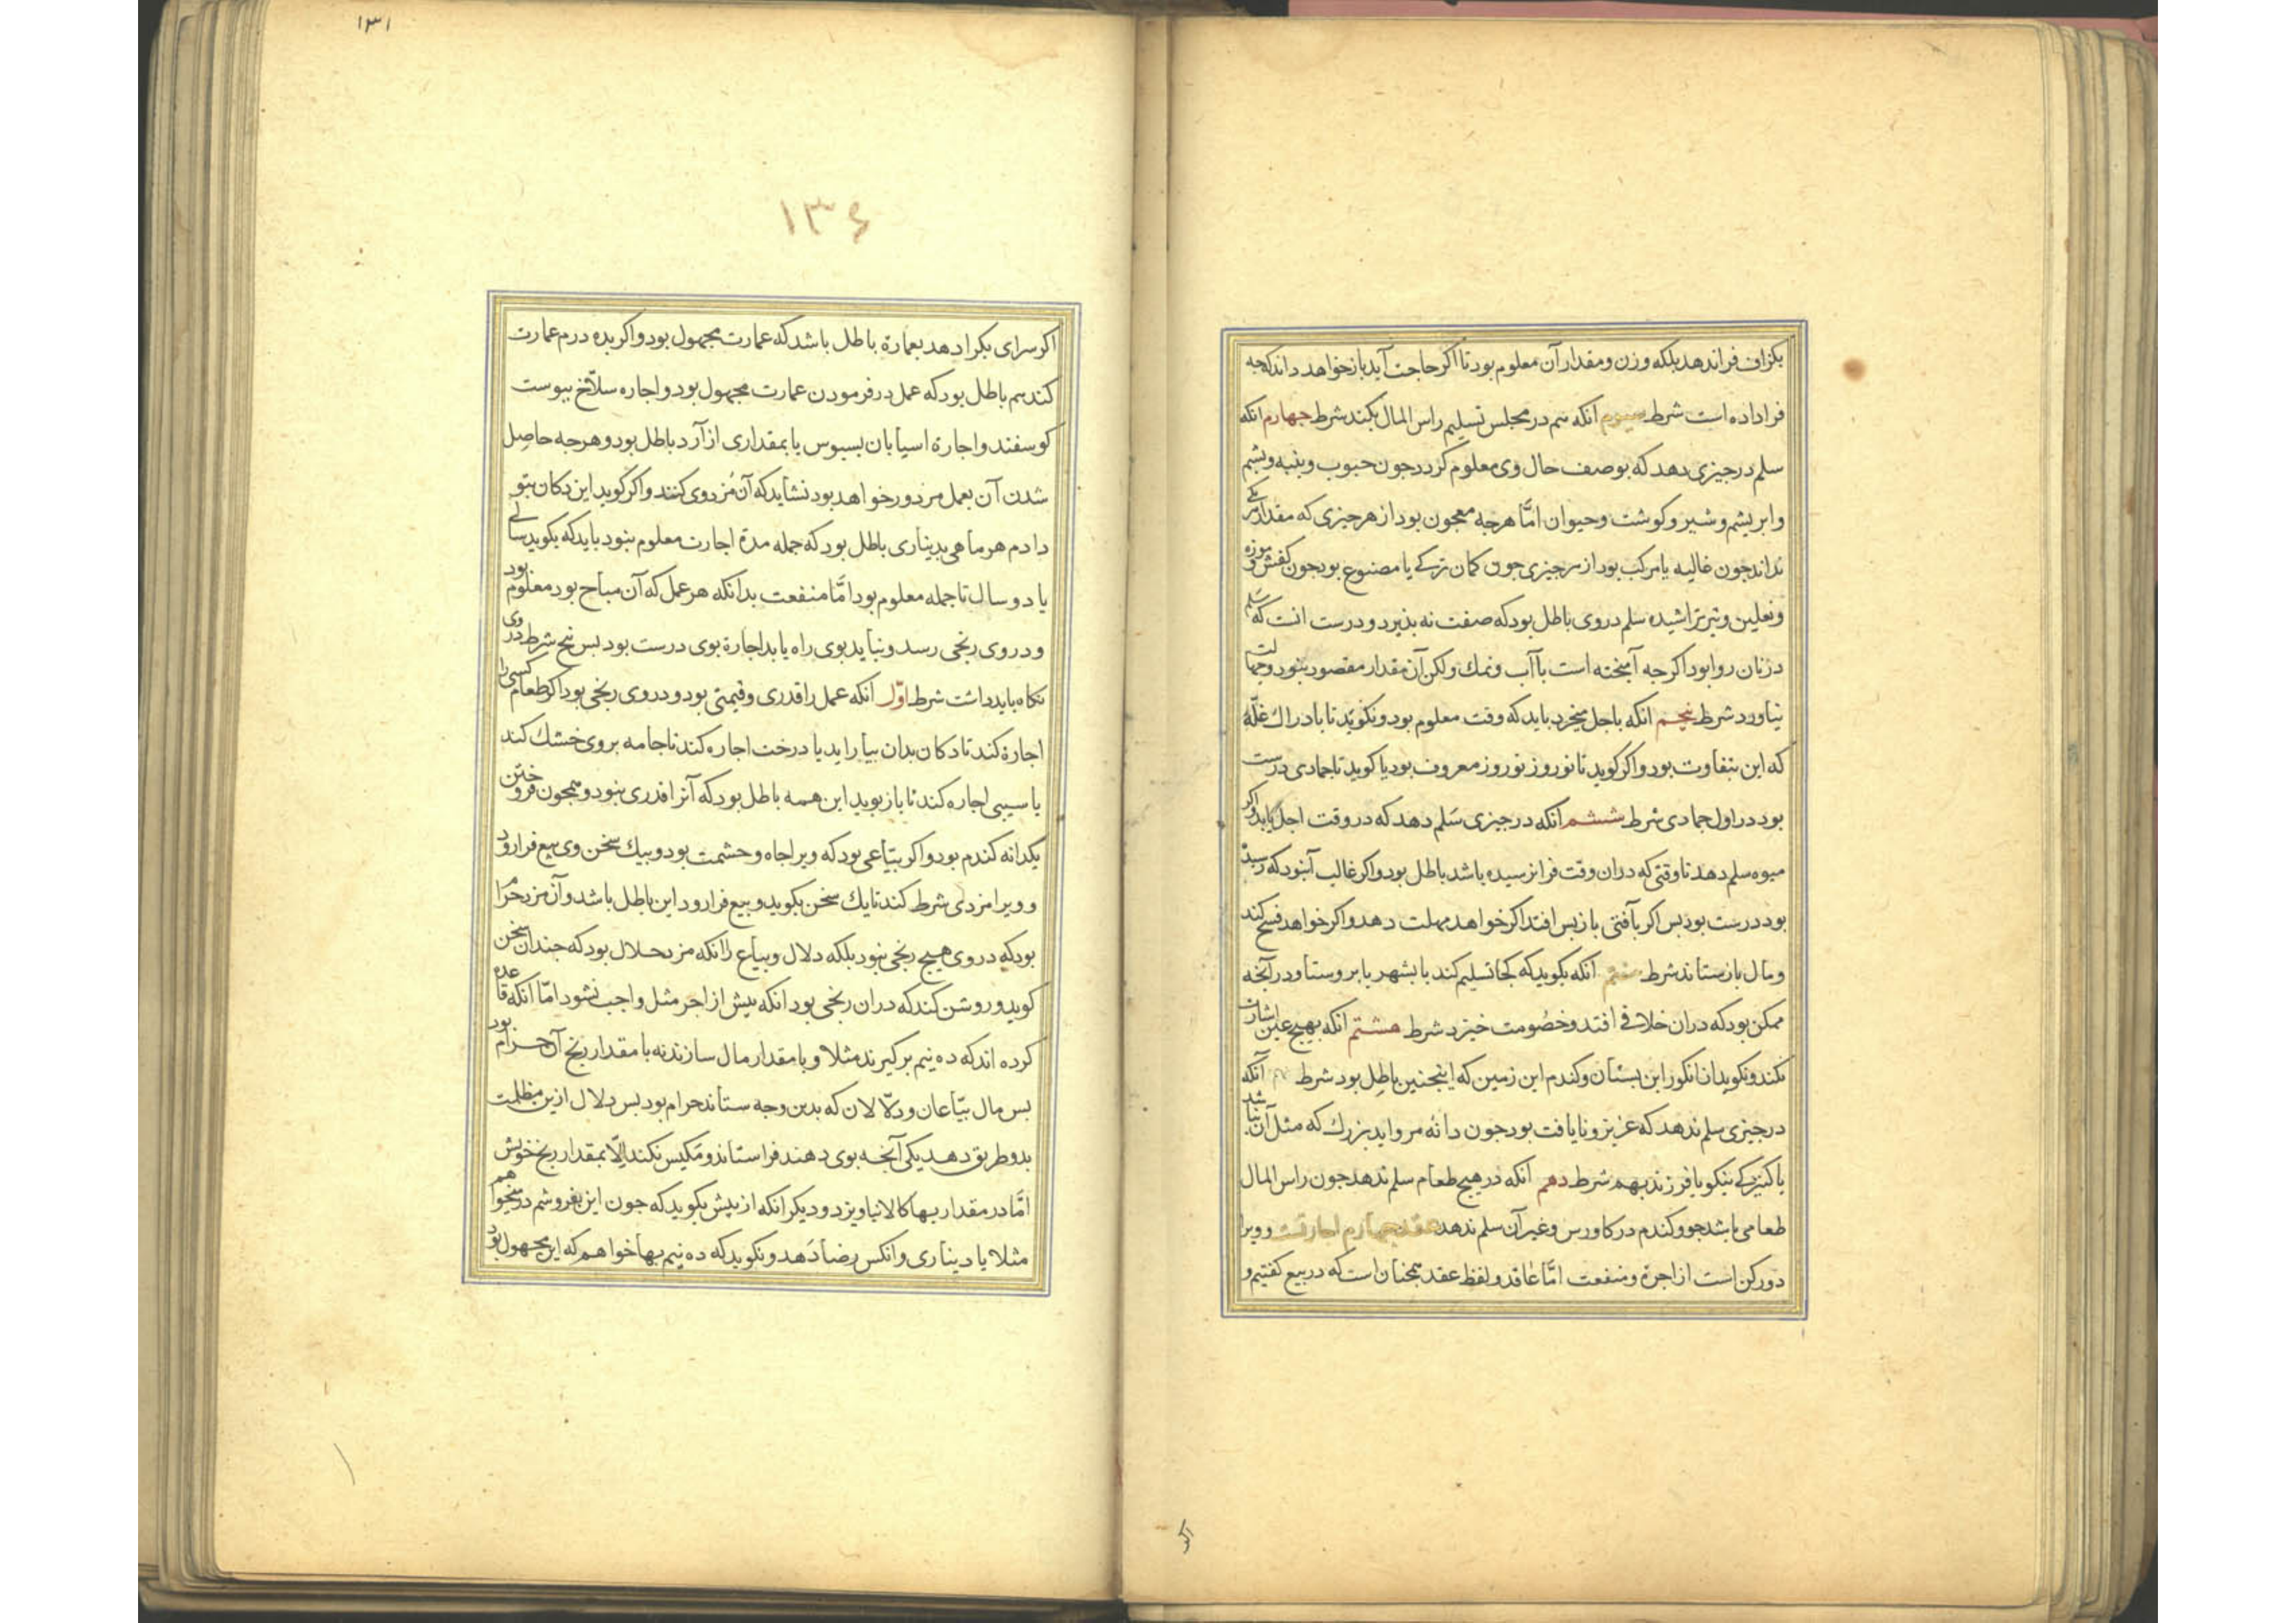 بکزاف فراندهد بلکه وزن ومقدار آن معلوم بود تا اکر حاجت آید باز خواهد داند که جه
فراداده است شرط سیوم انکه هم در مجلس تسلیم راس المال بکند شرط جهارم انکه
سلم در جیزی دهد که بوصف حال وی معلوم کردد جون حبوب وبنبه وبشم
وابریشم وشیر وکوشت وحیوان امّا هرجه معجون بود از هر جیزی که مقدار هر یکی
نداند جون غالیه یا مرکب بود از هر جیزی جون کمان ترکی یا مصنوع بود جون کفش و موزه
ونعلین وتیر تراشیده سلم در وی باطل بود که صفت نه بذیرد ودرست انست که سلم
در نان روا بود اکرجه آمیخته است باآب ونمک ولکن آن مقدار مقصود نبود وجهالت
نیاورد شرط بنجم انکه باجل میخرد باید که وقت معلوم بود ونکوید تا بادراك غلّه
که این متفاوت بود واکر کوید تا نوروز نوروز معروف بود یا کوید تا جمادی درست
بود در اول جمادی شرط ششم انکه در جیزی سلم دهد که در وقت اجل یابد و اکر
میوه سلم دهد تا وقتی که دران وقت فرانرسیده باشد باطل بود واکر غالب آنبود که رسیده
بود درست بود بس اکر بآفتی باز بس افتد اکر خواهد مهلت دهد واکر خواهد فسخ کند
ومال باز ستاند شرط هفتم انکه بکوید که کجا تسلیم کند یا بشهر یا بروستا ودر آنجه
ممکن بود که دران خلافی افتد وخصومت خیزد شرط هشتم انکه بهیج عین اشارت
نکند ونکوید از انکور این بستان وکندم این زمین که اینجنین باطل بود شرط نهم آنکه
در جیزی سلم ندهد که عزیز ونایافت بود جون دانه مروارید بزرك که مثل آن نباشد
یا کنیزکی نیکو یا فرزند بهم شرط دهم انکه در هیج طعام سلم ندهد جون راس المال
طعامی باشد جو وکندم در کاورس وغیر آن سلم ندهد عقد جهارم اجارتست وویرا
دو رکن است از اجرة ومنفعت امّا عاقد ولفظ عقد همجنان است که در بیع کفتیم و
اکر
۱۳۱
۱۳۶
اکر سرای بکرا دهد بعمارة باطل باشد که عمارت مجهول بود واکر بده درم عمارت
کند هم باطل بود که عمل در فرمودن عمارت مجهول بود واجاره سلاّخ ببوست
کوسفند واجارة اسیابان بسبوس یا بمقداری از آرد باطل بود وهرجه حاصل
شدن آن بعمل مزدور خواهد بود نشاید که آن مُزد وی کنند واکر کوید این دکان بتو
دادم هر ماهی بدیناری باطل بود که جمله مدة اجارت معلوم نبود باید که بکوید سالی
یا دو سال تا جمله معلوم بود امّا منفعت بدانکه هر عمل که آن مباح بود معلوم بود
ودر وی رنجی رسد ونیابد بوی راه یابد اجارة بوی درست بود بس بنج شرط در وی
نکاه باید داشت شرط اوّل انکه عمل را قدری وقیمتی بود ودر وی رنجی بود اکر طعام کسی را
اجارة کند تا دکان بدان بیاراید یا درخت اجاره کند تا جامه بروی خشك کند
یا سیبی اجاره کند تا ببوید این همه باطل بود که آنرا قدری نبود وهمجون فروختن
یکدانه کندم بود واکر بیّاعی بود که ویرا جاه وحشمت بود وبیك سخن وی بیع فرارود
وویرا مزدی شرط کند تا یك سخن بکوید وبیع فرارود این باطل باشد وآن مزد حرام
بود که در وی هیج رنجی نبود بلکه دلال وبیاع را انکه مزد حلال بود که جندان سخن
کوید وروشن کند که دران رنجی بود انکه بیش از اجر مثل واجب نشود امّا انکه قاعده
کرده اند که ده نیم برکیرند مثلا وبا مقدار مال سازند نه با مقدار رنج آن حرام بود
بس مال بیّاعان ودلّالان که بدین وجه ستاند حرام بود بس دلال ازین مظلمت
بدو طریق دهد یکی آنجه بوی دهند فراستاند ومکیس نکند اِلّا بمقدار رنج خویش
امّا در مقدار بهاء کالا نیاویزد ودیکر انکه از بیش بکوید که جون این بفروشم درمی خواهم
مثلا یا دیناری وانکس رضا دهد ونکوید که ده نیم بهاء خواهم که این مجهول بود